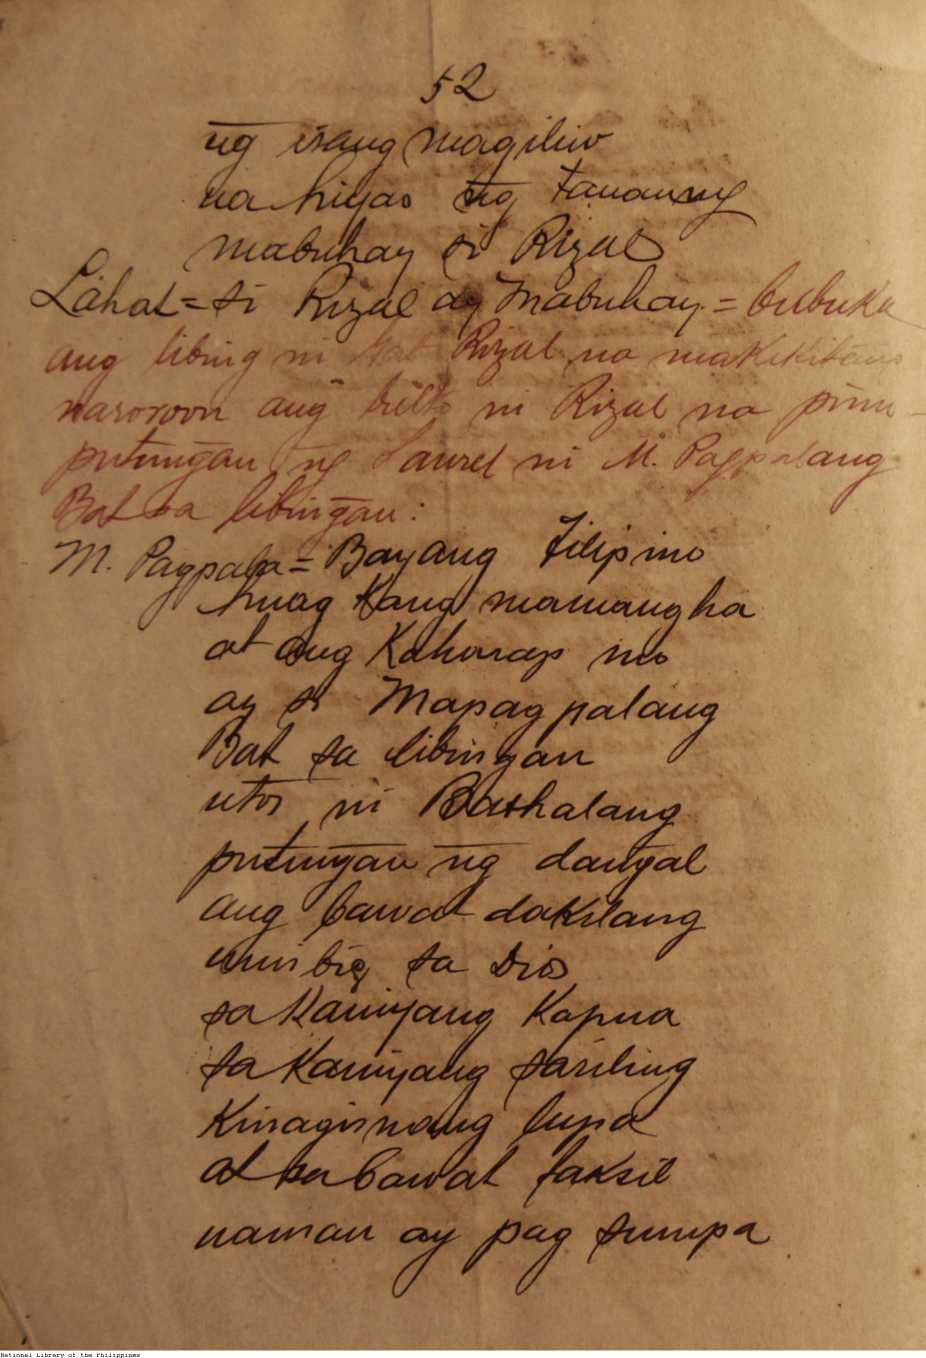 52
n͠g isang magiliw
na hiyas n͠g tanang
mabuhay si Rizal
Lahat = Si Rizal ay Mabuhay = bubuka
ang libing ni Rizal na makikitang
naroroon ang ni Rizal na pinu-
putun͠gan n͠g Laurel ni M. Pagpalang
Bat sa libin͠gan:
M. Pagpala = Bayang Filipino
huag Kang mamangha
at ang Kaharap mo
ay si Mapagpalang
Bat sa libingan
utos ni Bathalang
putun͠gan n͠g dan͠gal
ang bawat dakilang
umibig sa Dios
sa Kaniyang Kapua
sa Kaniyang sariling
Kinagisnang lupa
at sa bawat taksil
naman ay pag sumpa
National Library of the Philippines